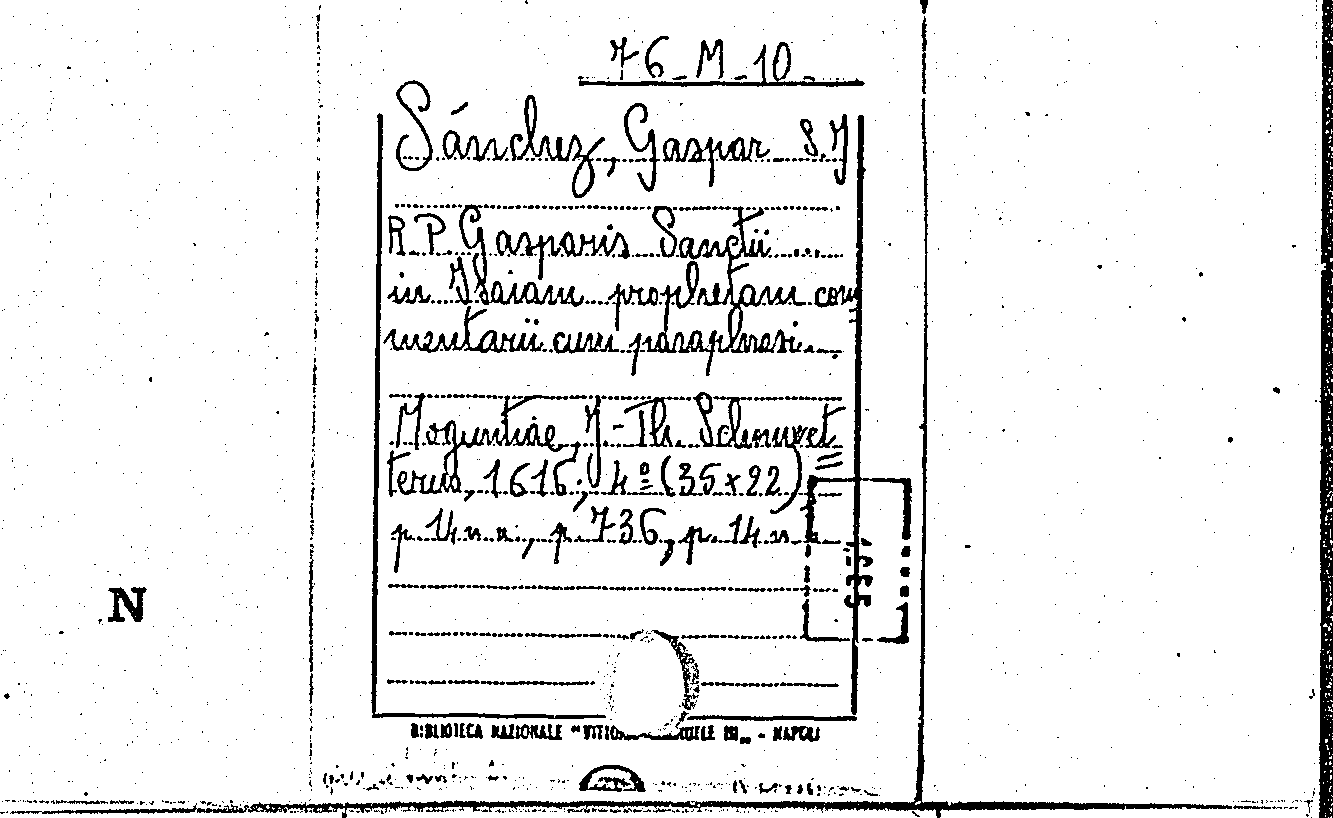 76-M-10
Sánchez, Gaspar S.J
R.P. Gasparis Sanctii ...
in Isaiam prophetam com
mentarii cum paraphrasi...
Moguntiae, J.-Th. Schonwet
terus, 1616; 4º (35x22)
p. 14 n n., p. 736, p. 14 n.
N
BIBLIOTECA NAZIONALE "VITTORIO EMANUELE III„ - NAPOLI